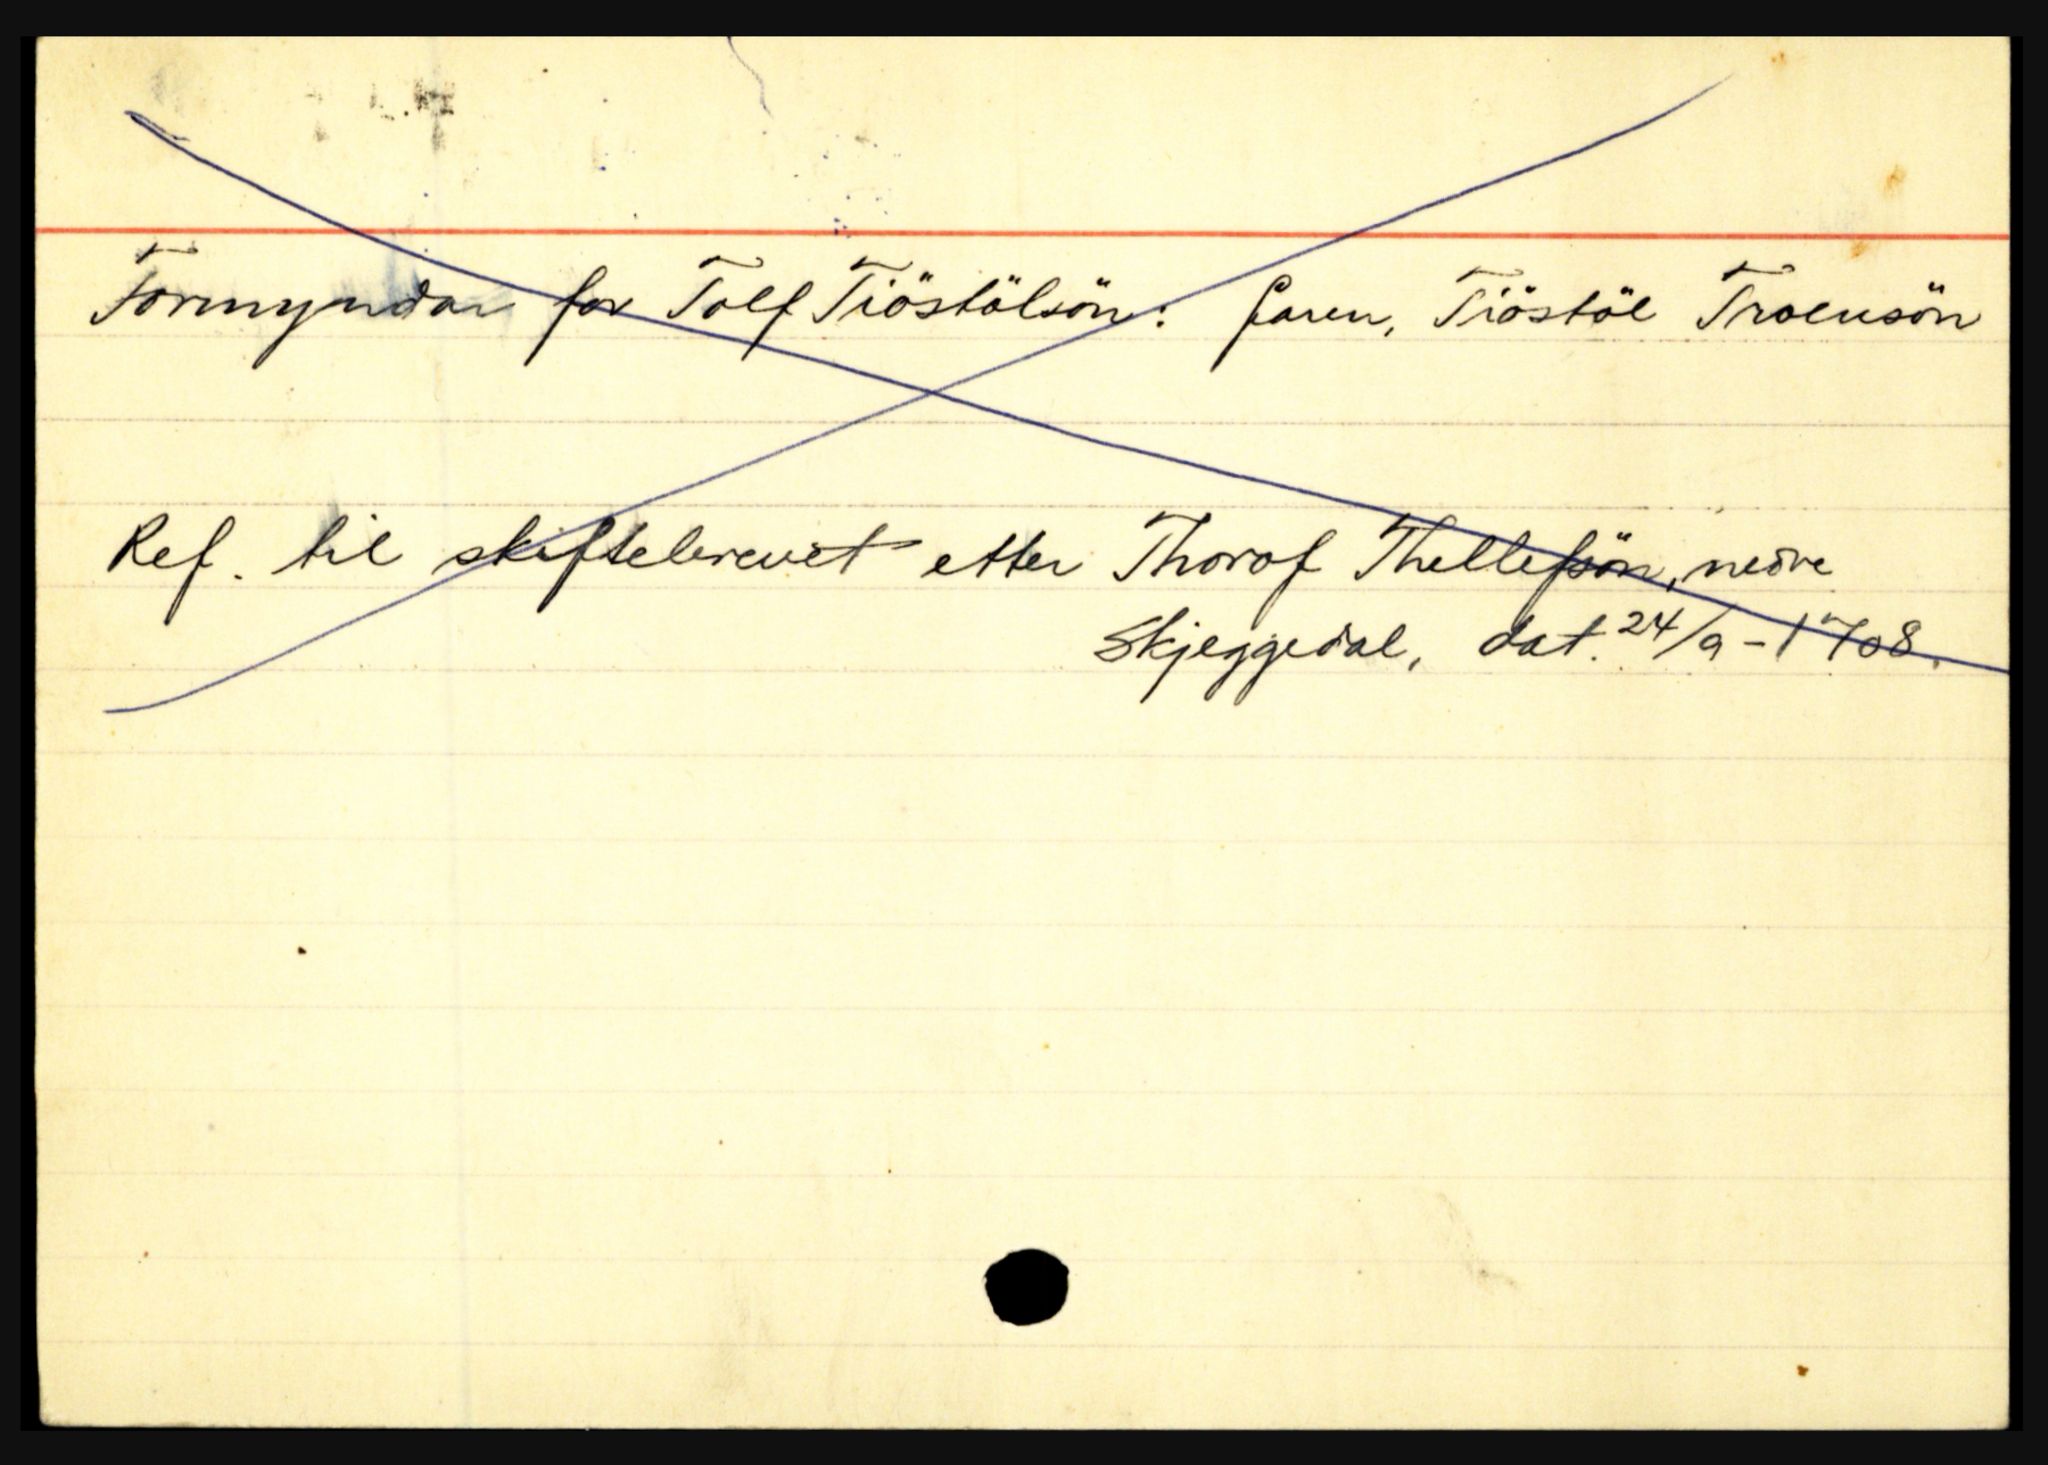 Formyndar for Tolf Tiöstölsön: faren, Tiöstöl Troensön
Ref. til skiftebrevet etter Thorof Thellefsön, nedre
Skjeggedal, dat. 24/9-1708.